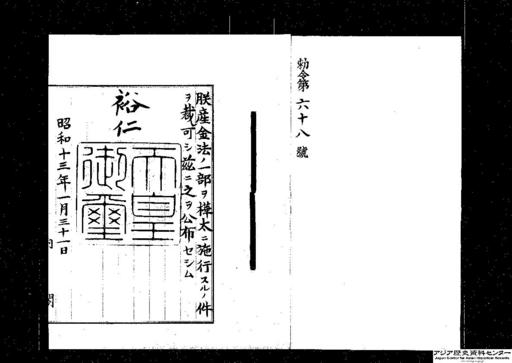 勅令第六十八號
朕産金法ノ一部ヲ樺太ニ施行スルノ件
ヲ裁可シ茲ニ之ヲ公布セシム
裕仁
天皇御璽
昭和十三年一月三十一日
内閣
アジア歴史資料センター
Japan Center for Asian Historical Records